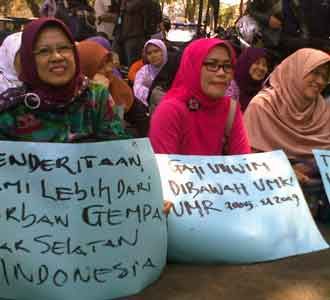 ENDERITAAN,
AMI LEBIH DARI
RBAN GEMPA
SELATAN
INDONESIA
GAJI
DIBAWAH UMK/
UMR 2005